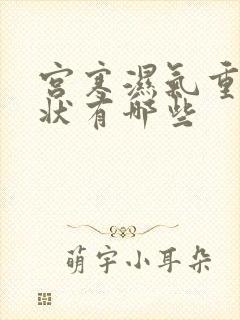 宫寒濕氣重
狀有哪些
萌宇小耳朵